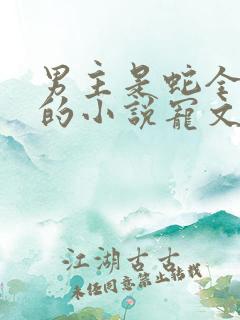 男主是蛇全
的小说宠文
江湖古古
未经同意禁止转载